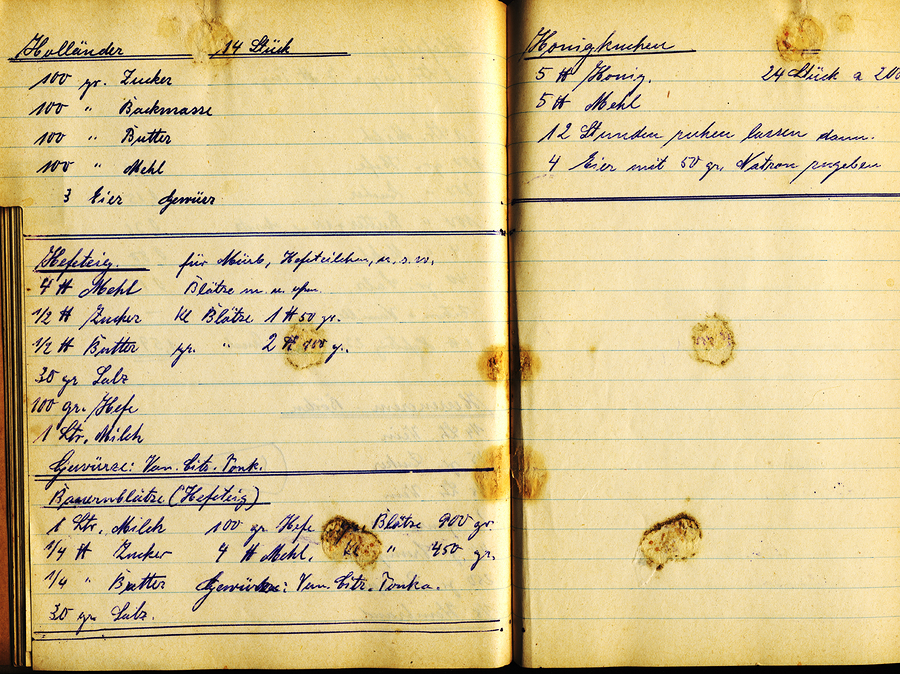 Holländer 14 Stück
100 gr. Zucker
100 " Backmasse
100 " Butter
100 " Mehl
3 Eier Gewürz
Hefeteig. für Mürb, Hefeteilchen, u. s. w.
4 ℔ Mehl Blätze
1/2 ℔ Zucker Kl Blätze 1 ℔ 50 gr.
1/2 ℔ Butter gr. " 2 ℔ 100 g.
30 gr Salz
100 gr. Hefe
1 Ltr. Milch
Gewürze: Van. Citr. Tonk.
Bauernblätze (Hefeteig)
1 Ltr. Milch 100 gr Hefe Blätze 900 gr
1/4 ℔ Zucker 4 ℔ Mehl. Kl " 450 gr.
1/4 " Butter Gewürze: Van. Citr. Tonka.
30 gr. Salz.
Honigkuchen
5 ℔ Honig. 24 Stück a 200
5 ℔ Mehl
12 Stunden ruhen lassen dann.
4 Eier mit 50 gr. Natron zugeben